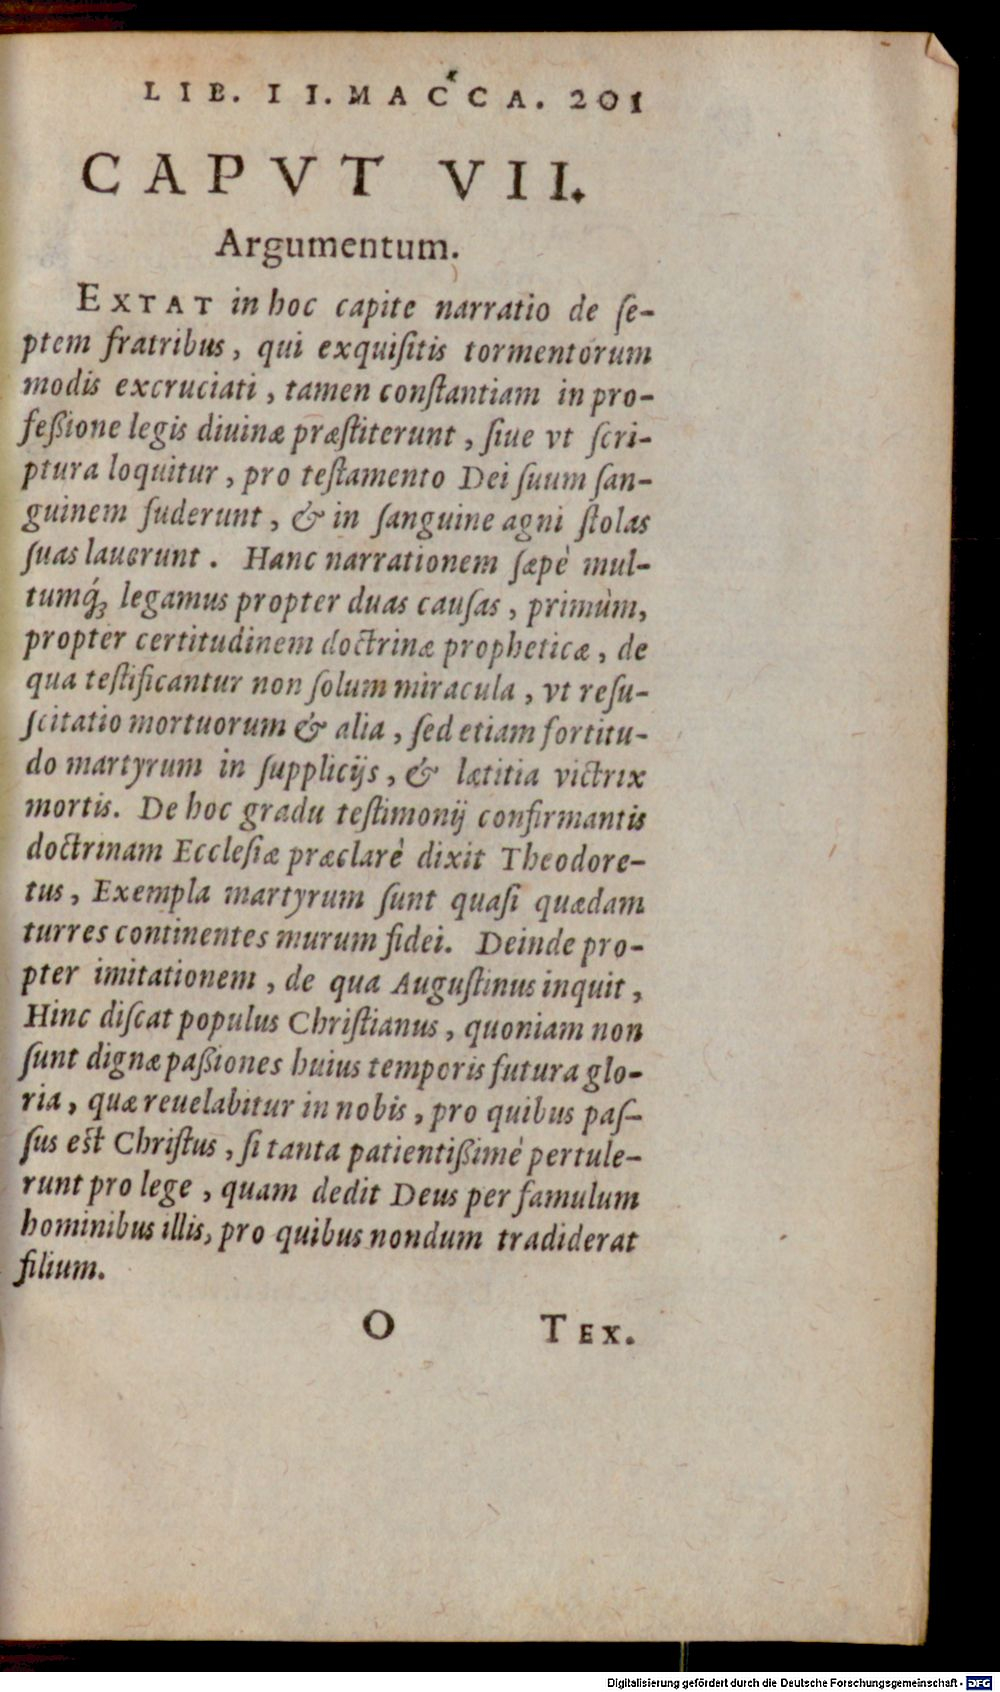 LIB. II. MACCA. 201
CAPVT VII.
Argumentum.
EXTAT in hoc capite narratio de ſe-
ptem fratribus, qui exquiſitis tormentorum
modis excruciati, tamen conſtantiam in pro-
feßione legis diuinæ præſtiterunt, ſiue vt ſcri-
ptura loquitur, pro teſtamento Dei ſuum ſan-
guinem fuderunt, & in ſanguine agni ſtolas
ſuas lauerunt. Hanc narrationem ſæpè mul-
tumq́ꝫ legamus propter duas cauſas, primùm,
propter certitudinem doctrinæ propheticæ, de
qua teſtificantur non ſolum miracula, vt reſu-
ſcitatio mortuorum & alia, ſed etiam fortitu-
do martyrum in ſupplicijs, & lætitia victrix
mortis. De hoc gradu teſtimonij confirmantis
doctrinam Eccleſiæ præclarè dixit Theodore-
tus, Exempla martyrum ſunt quaſi quædam
turres continentes murum fidei. Deinde pro-
pter imitationem, de qua Auguſtinus inquit,
Hinc diſcat populus Chriſtianus, quoniam non
ſunt dignæ paßiones huius temporis futura glo-
ria, quæ reuelabitur in nobis, pro quibus paſ-
ſus eſt Chriſtus, ſi tanta patientißimè pertule-
runt pro lege, quam dedit Deus per famulum
hominibus illis, pro quibus nondum tradiderat
filium.
O TEX.
Digitalisierung gefördert durch die Deutsche Forschungsgemeinschaft - DFG